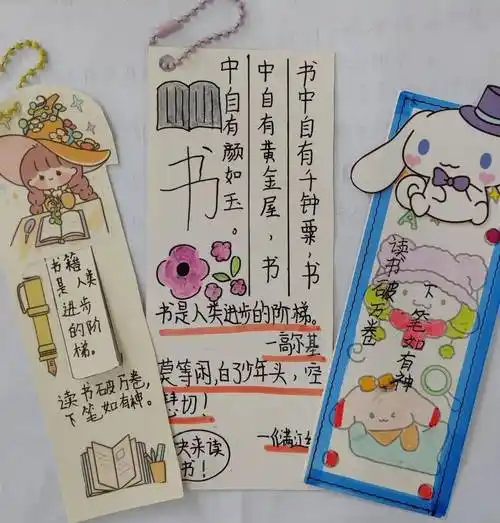 书籍
是人类
进步
的阶
梯。
读书破万卷，
下笔如有神。
书中自有千钟粟，书
中自有黄金屋，书
中自有颜如玉。
书
书是人类进步的阶梯。
—高尔基
莫等闲，白了少年头，空
悲切！
—《满江
快来读
书！
读书破万卷
下笔如有神